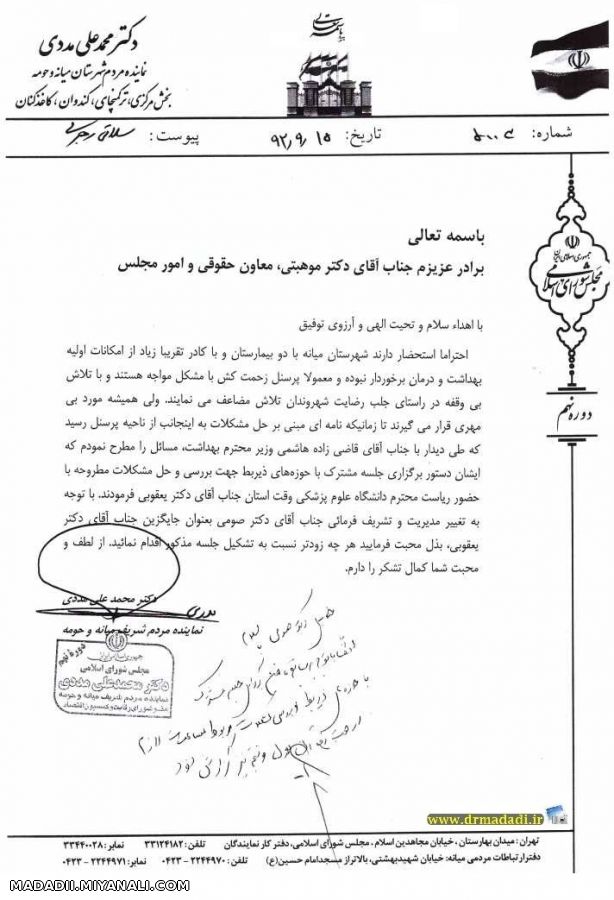 باسمه تعالی
دکتر محمد علی مددی
نماینده مردم شهرستان میانه و حومه
بخش مرکزی، ترکمنچای، کندوان، کاغذکنان
شماره: ۵۰۰۴
تاریخ: ۹۲٫۹٫۱۵
پیوست:
جمهوری اسلامی ایران
مجلس شورای اسلامی
دوره نهم
باسمه تعالی
برادر عزیزم جناب آقای دکتر موهبتی، معاون حقوقی و امور مجلس
با اهداء سلام و تحیت الهی و آرزوی توفیق
احتراما استحضار دارند شهرستان میانه با دو بیمارستان و با کادر تقریبا زیاد از امکانات اولیه
بهداشت و درمان برخوردار نبوده و معمولا پرسنل زحمت کش با مشکل مواجه هستند و با تلاش
بی وقفه در راستای جلب رضایت شهروندان تلاش مضاعف می نمایند. ولی همیشه مورد بی
مهری قرار می گیرند تا زمانیکه نامه ای مبنی بر حل مشکلات به اینجانب از ناحیه پرسنل رسید
که طی دیدار با جناب آقای قاضی زاده هاشمی وزیر محترم بهداشت، مسائل را مطرح نمودم که
ایشان دستور برگزاری جلسه مشترک با حوزه‌های ذیربط جهت بررسی و حل مشکلات مطروحه با
حضور ریاست محترم دانشگاه علوم پزشکی وقت استان جناب آقای دکتر یعقوبی فرمودند. با توجه
به تغییر مدیریت و تشریف فرمائی جناب آقای دکتر صومی بعنوان جایگزین جناب آقای دکتر
یعقوبی، بذل محبت فرمایید هر چه زودتر نسبت به تشکیل جلسه مذکور اقدام نمائید. از لطف و
محبت شما کمال تشکر را دارم.
دکتر محمد علی مددی
نماینده مردم شریف میانه و حومه
جمهوری اسلامی ایران
دوره نهم
مجلس شورای اسلامی
دکتر محمدعلی مددی
نماینده مردم شریف میانه و حومه
www.drmadadi.ir
تهران: میدان بهارستان، خیابان مجاهدین اسلام، مجلس شورای اسلامی، دفتر کار نمایندگان تلفن: ۳۳۱۲۴۱۸۲ نمابر: ۳۳۴۴۰۰۲۸
دفتر ارتباطات مردمی میانه: خیابان شهیدبهشتی، بالاتراز مسجدامام حسین(ع) تلفن: ۲۲۴۴۹۷۰-۰۴۲۳ نمابر: ۲۲۴۴۹۷۱-۰۴۲۳
MADADII.MIYANALI.COM